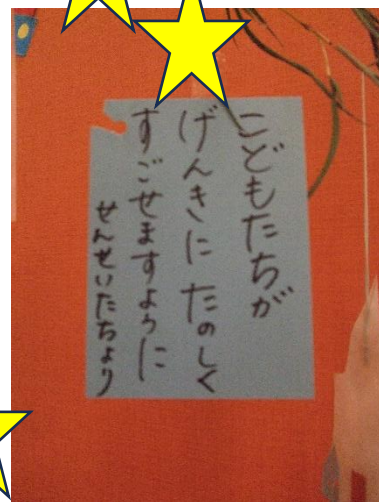 こどもたちが
げんきに たのしく
すごせますように
せんせいたちより